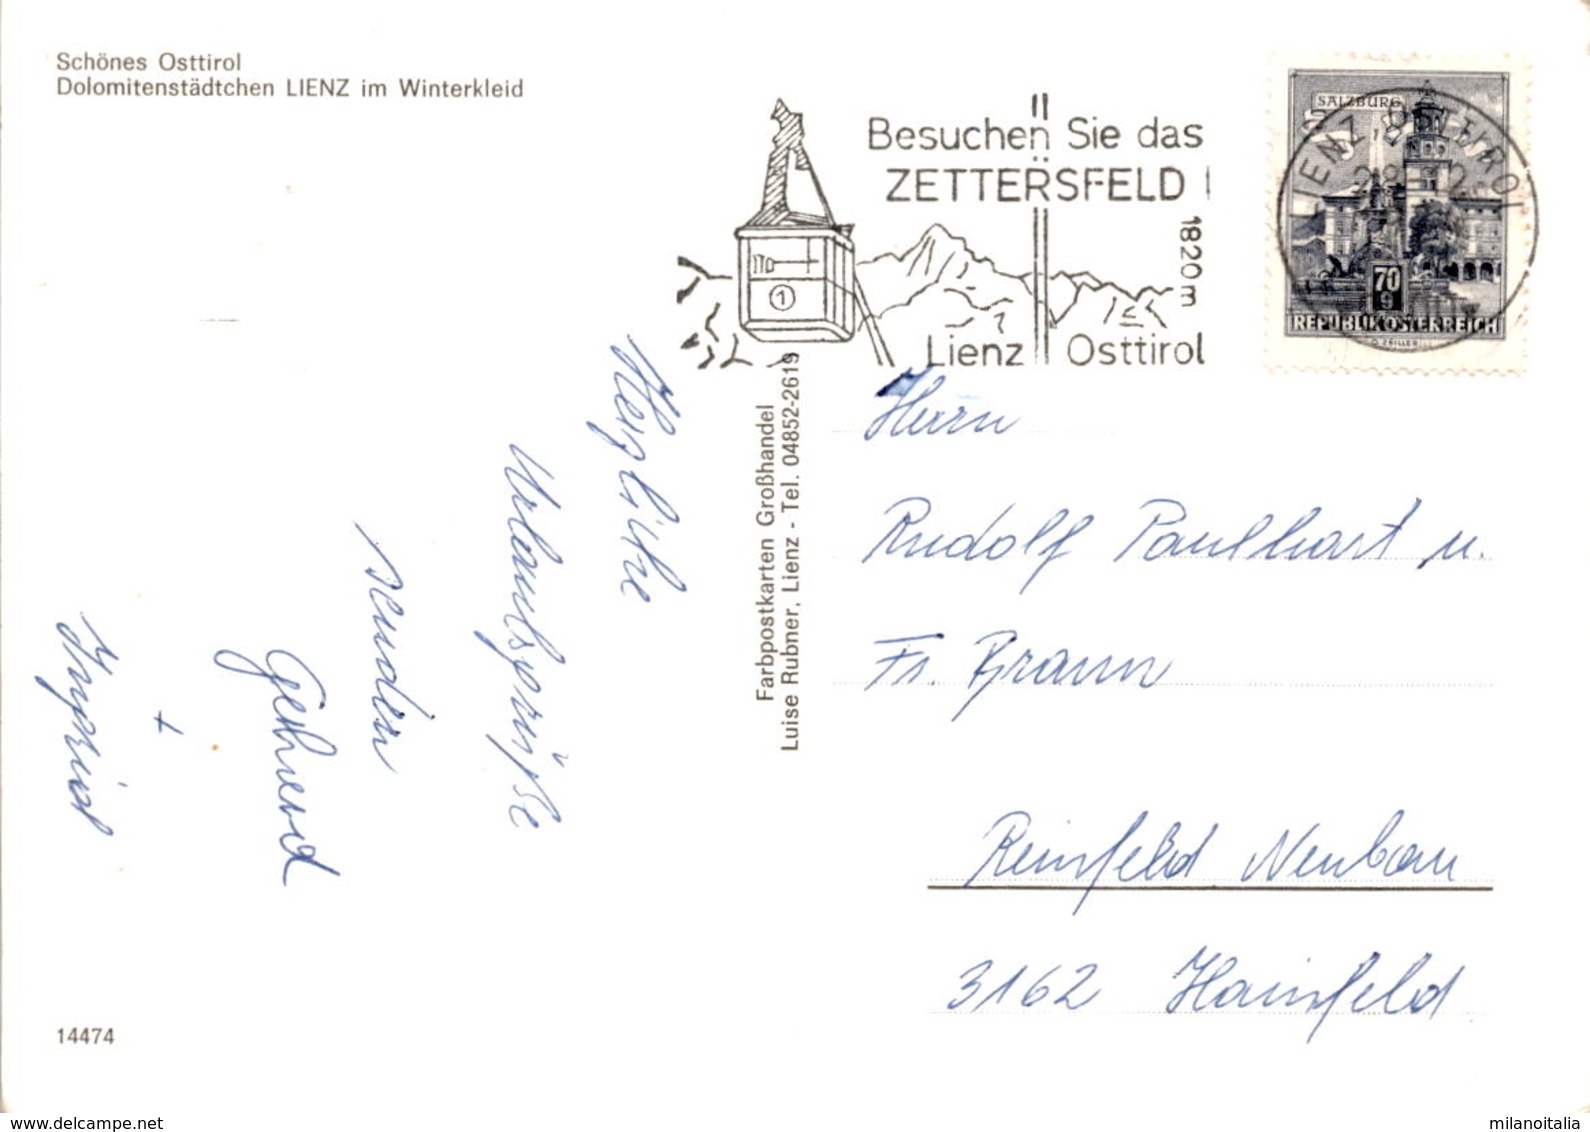 Schönes Osttirol
Dolomitenstädtchen LIENZ im Winterkleid
Besuchen Sie das
ZETTERSFELD !
1820 m
Lienz Osttirol
1
SALZBURG
LIENZ OSTTIROL
70
g
REPUBLIK ÖSTERREICH
Herzliche
Urlaubsgrüße
senden
Gerhard
+
Ingrid
Farbpostkarten Großhandel
Luise Rubner, Lienz - Tel. 04852-2619
Herrn
Rudolf Paulhart u.
Fr. Braun
Reinfeld Neubau
3162 Hainfeld
14474
www.delcampe.net
milanoitalia